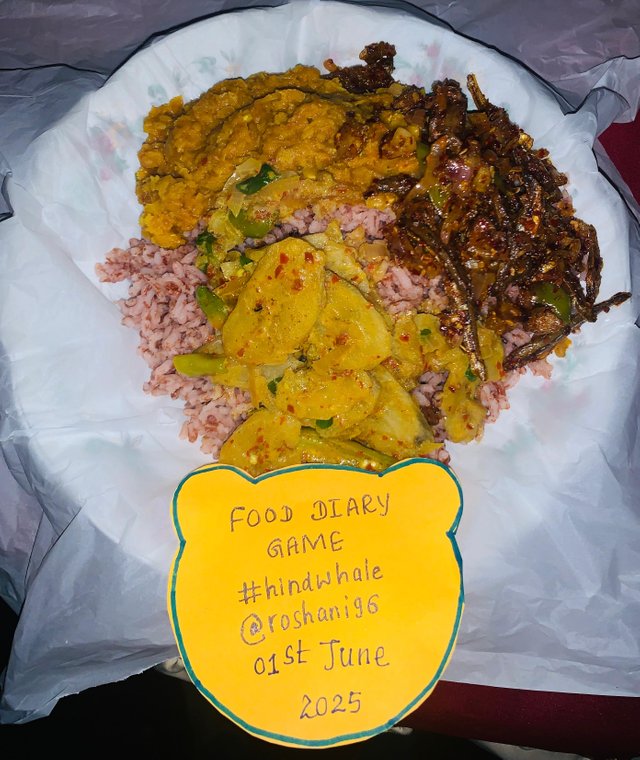 FOOD DIARY
GAME
#hindwhale
@roshani96
01st June
2025